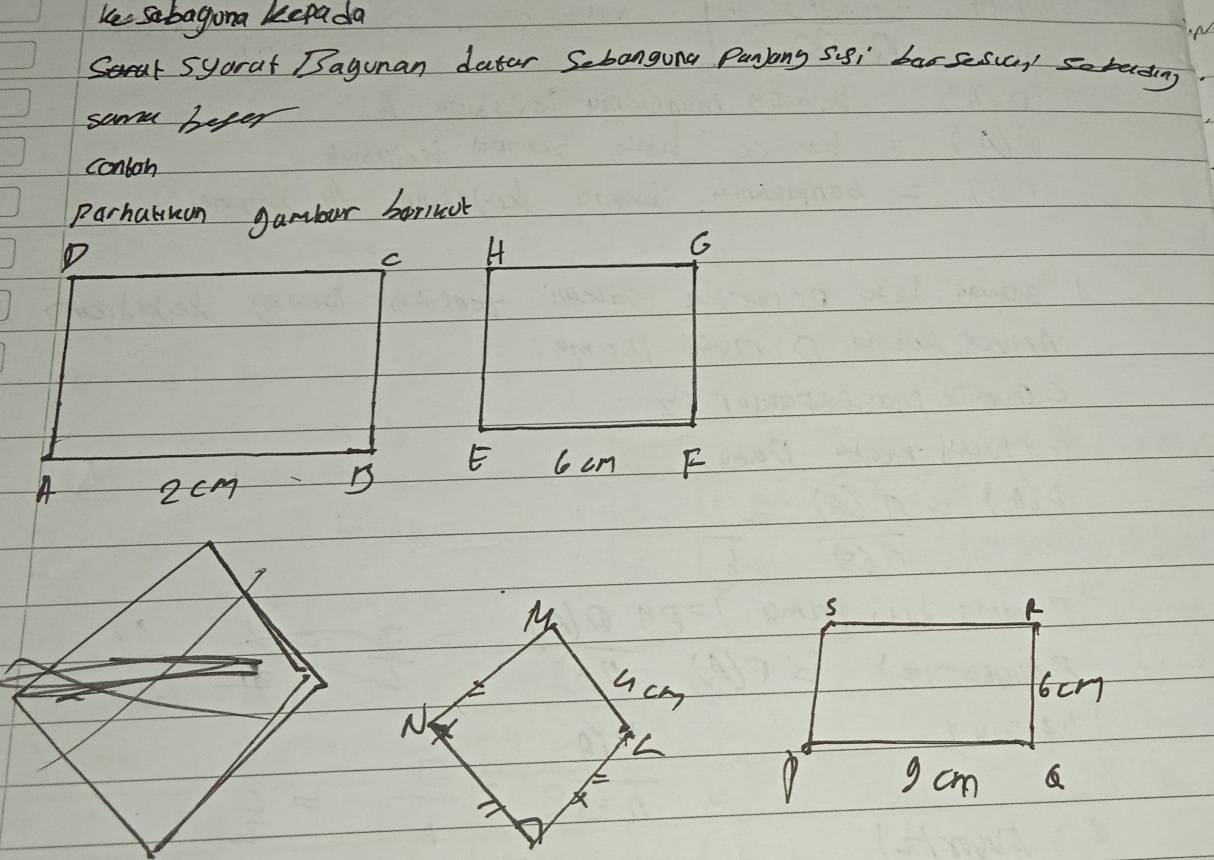 Kesabaguna kepada
Syarat Bagunan datar Sebanguna Panjang sisi barsesuai sebading.
sama beser
contoh
Parhatikan gambar borikut
D C H G
A 2 cm B E 6 cm F
M S R
4 cm 6 cm
N L
P 9 cm Q